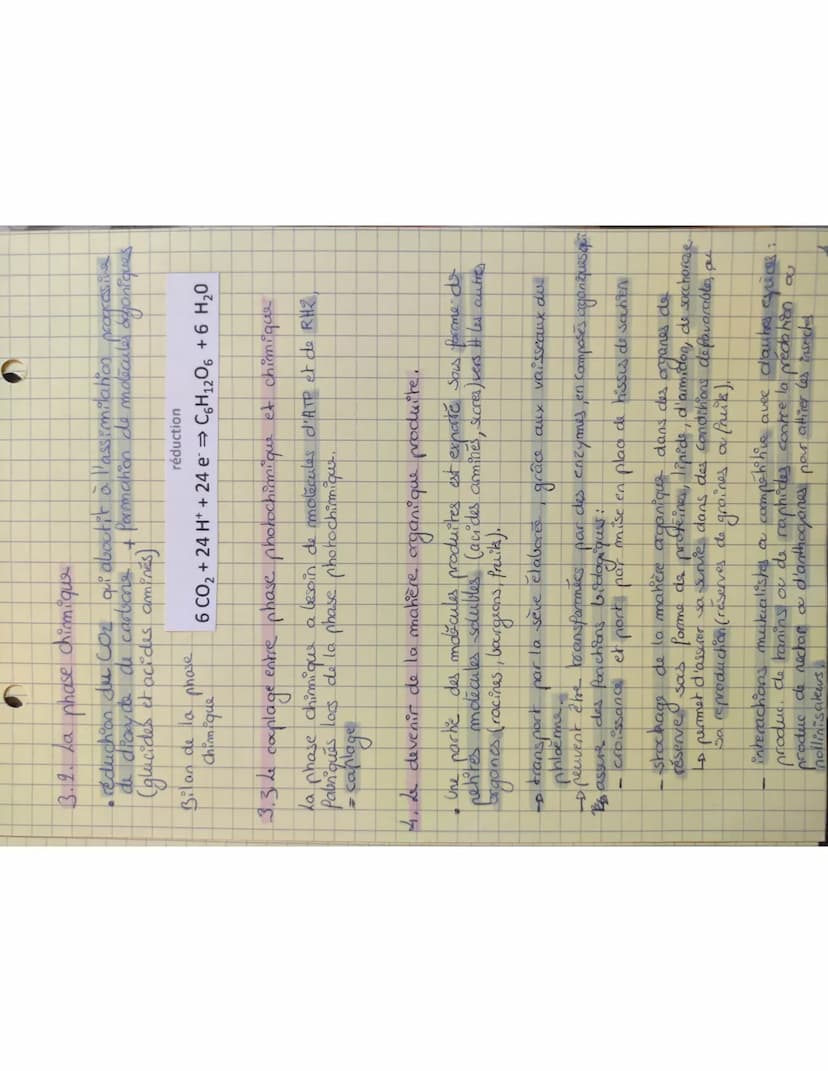 3.2. La phase chimique
• réduction du CO2 qi aboutit à l'assimilation progressive
de dioxyde de carbone + formation de molécules organiques
(glucides et acides aminés)
Bilan de la phase
chimique
réduction
6 CO₂ + 24 H⁺ + 24 e⁻ ⇒ C₆H₁₂O₆ + 6 H₂O
3.3 Le couplage entre phase photochimique et chimique
La phase chimique a besoin de molécules d'ATP et de RH2,
fabriqués lors de la phase photochimique.
= couplage
4. Le devenir de la matière organique produite.
• Une partie des molécules produites est exporté sous forme de
petites molécules solubles (acides aminés, sucres) vers les autres
organes (racines, bourgeons, fruits).
→ transport par la sève élaborée, grâce aux vaisseaux du
phloème.
→ peuvent être transformées par des enzymes, en composés organiques qi
assure des fonctions biologiques :
- croissance et port par mise en place de tissus de soutien
- stockage de la matière organique dans des organes de
réserve sous forme de protéines, lipide, d'amidon, de saccharose.
↳ permet d'assurer sa survie dans des conditions défavorables, ou
sa reproduction (réserves de graines ou fruits).
- interactions mutualistes ou compétitive avec d'autres espèces :
produc. de tanins ou de raphides contre la prédation ou
produc de nectar ou d'anthocyanes pour attirer les insectes
pollinisateurs